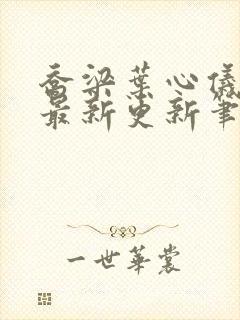 乔梁叶心仪
最新更新笔
一世华裳